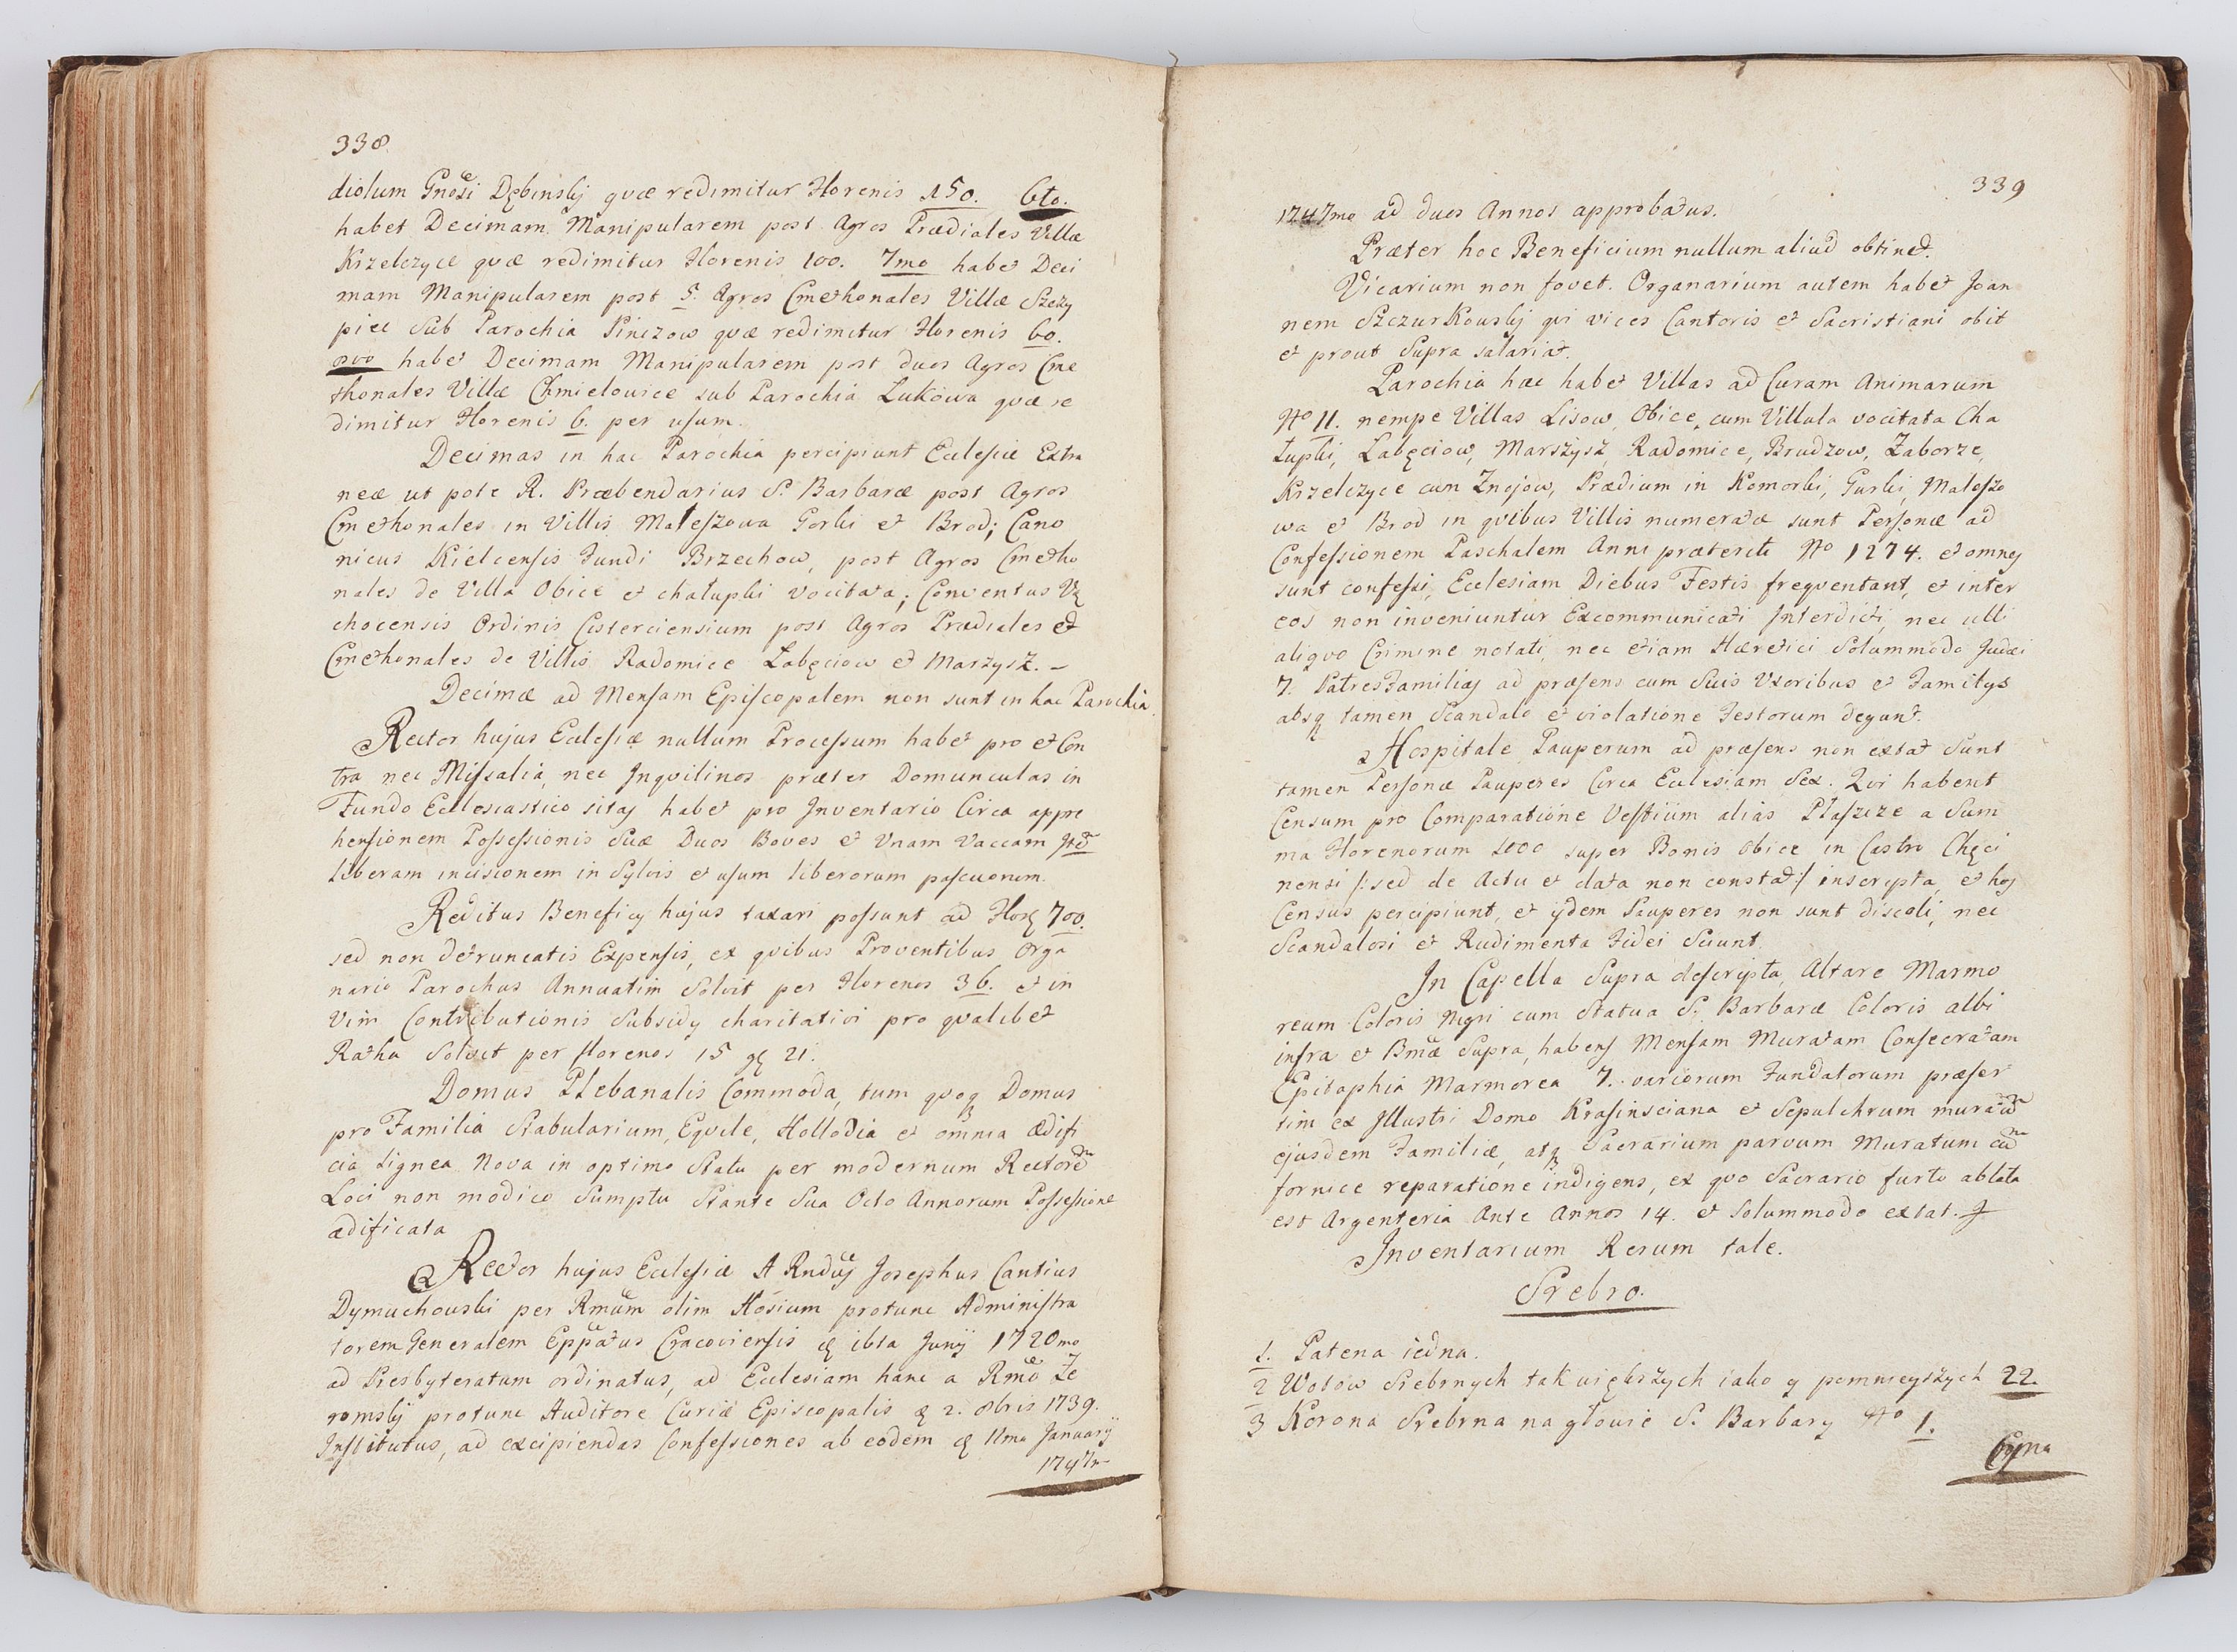 338
diolum Gnosi Dębinskj quæ redimitur Florenis 150. 6to.
habet Decimam Manipularem post Agros Prædiales Villæ
Krzelczyce quæ redimitur Florenis 100. 7mo habet Deci
mam Manipularem post 5. Agros Cmethonales Villæ Szczy
piec Sub Parochia Pinczow quæ redimitur Florenis 60.
8vo habet Decimam Manipularem post duos Agros Cme
thonales Villæ Chmielowice sub Parochia Lukowa quæ re
dimitur Florenis 6. per usum.
Decimas in hac Parochia percipiunt Ecclesiæ Extra
neæ ut pote R. Præbendarius S. Barbaræ post Agros
Cmethonales in Villis Maleszowa Gorki et Brod; Cano
nicus Kielcensis Fundi Brzechow, post Agros Cmetho
nales de Villa Obice et chałupki vocitata; Conventus Vą
chocensis Ordinis Cisterciensium post Agros Prædiales et
Cmethonales de Villis Radomice Labęciow et Marzysz. -
Decimæ ad Mensam Episcopalem non sunt in hac Parochia
Rector hujus Ecclesiæ nullum Processum habet pro et Con
tra nec Missalia, nec Inqvilinos præter Domunculas in
Fundo Ecclesiastico sitas habet pro Inventario Circa appre
hensionem Possessionis Suæ Duos Boves et Unam Vaccam
liberam incisionem in Sylvis et usum liberorum pascuorum.
Reditus Beneficij hujus taxari possunt ad Flor 700.
sed non detruncatis Expensis, ex quibus Proventibus Orga
nario Parochus Annuatim Solvit per Florenos 36. et in
Vim Contributionis Subsidij charitativi pro qvalibet
Ratha Solvit per florenos 15 gr 21.
Domus Plebanalis Commoda, tum qvoq Domus
pro Familia Stabularium, Eqvile, Hollodia et omnia Ædifi
cia Lignea Nova in optimo Statu per modernum Rectorem
Loci non modico Sumptu Stante Sua Octo Annorum Possessione
ædificata
Rector hujus Ecclesiæ A Rndus Josephus Cantius
Dymuchowski per Rmum olim Hosium protunc Administra
torem Generalem Eppatus Cracoviensis ibta Junij 1720mo
ad Presbyteratum ordinatus, ad Ecclesiam hanc a Rmo Ze
romskj protunc Auditore Curiæ Episcopalis 2. 8bris 1739.
Institutus, ad excipiendas Confessiones ab eodem 11ma January
1747
339
1747mo ad duos Annos approbatus.
Præter hoc Beneficium nullum aliud obtinet.
Vicarium non fovet. Organarium autem habet Joan
nem Szczurkowskj qvi vices Cantoris et Sacristiani obit
et prout Supra salariat.
Parochia hæc habet Villas ad Curam Animarum
No 11. nempe Villas Lisow, Obice, cum Villula vocitata Cha
łupki, Labęciow, Marszysz, Radomice, Brudzow, Zaborze,
Krzelczyce cum Znojow, Prædium in Komorki, Gurki, Maleszo
wa et Brod in qvibus Villis numeratæ sunt Personæ ad
Confessionem Paschalem Anni præteriti No 1274. et omnes
sunt confessi, Ecclesiam Diebus Festis freqventant, et inter
eos non inveniuntur Excommunicati Interdicti, nec ulli
aliqvo Crimine notati, nec etiam Hæretici Solummodo Judæi
7. PatresFamilias ad præsens cum Suis Uxoribus et Familijs
absq tamen Scandalo et violatione Festorum degunt.
Hospitale Pauperum ad præsens non extat Sunt
tamen Personæ Pauperes Circa Ecclesiam Sex. Qvi habent
Censum pro Comparatione Vestium alias Płaszcze a Sum
ma Florenorum 1000 super Bonis Obice in Castro Chęci
nensi /: sed de Actu et data non constat :/ inscripta, et hos
Census percipiunt, et ijdem Pauperes non sunt discoli, nec
Scandalosi et Rudimenta Fidei Sciunt.
In Capella Supra descripta, Altare Marmo
reum Coloris Nigri cum Statua S. Barbaræ Coloris albi
infra et Bmæ Supra, habens Mensam Muratam Consecratam
Epitaphia Marmorea 7. variorum Fundatorum præser
tim ex Illustri Domo Krasinsciana et Sepulchrum muratum
ejusdem Familiæ, atq Sacrarium parvum Muratum cum
fornice reparatione indigens, ex qvo Sacrario furto ablata
est Argenteria Ante Annos 14. et Solummodo extat.
Inventarium Rerum tale.
Srebro.
1. Patena iedna.
2 Wotow Srebrnych tak większych iako y pomnieyszych 22.
3 Korona Srebrna na głowie S. Barbary No 1.